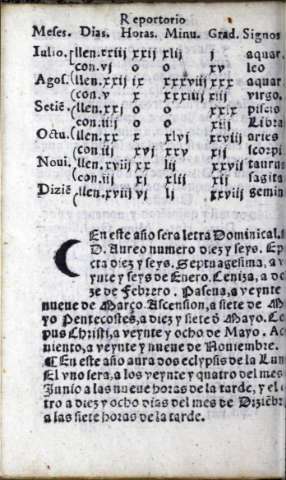 Reportorio
Meses. Dias. Horas. Minu. Grad. Signos
Iulio. llen.xxiii xxij xlij j aquar.
con.vj o o xv leo
Agos. llen.xxij ix xxxviij xxx aquar.
con.v x xxxiiij xiij virgo.
Setiē. llen.xxj o o xxix piscis
con.iiij o o xj Libra
Octu. llen.xx x xlvj xxviij aries
con.iij xvj xxv xj scorpi
Noui. llen.xviij xx lij xxvij taurus
con.ij xj xlij xij sagita
Diziē llen.xviij vj lj xxviij gemin
En este año sera letra Dominical.
D. Aureo numero diez y seys. Ep
cta diez y seys. Septuagesima, a ve
ynte y seys de Enero. Ceniza, a do
ze de febrero. Pascua, a veynte
nueue de Março. Ascension, a siete de M
yo Pentecostes, a diez y siete ō Mayo. Co
pus Christi, a veynte y ocho de Mayo. A
uiento, a veynte y nueue de Nouiembre.
En este año aura dos eclypsis de la Lun
El vno sera, a los veynte y quatro del mes
Junio a las nueue horas de la tarde, y el
tro a diez y ocho dias del mes de Diziēbr
a las siete horas de la tarde.